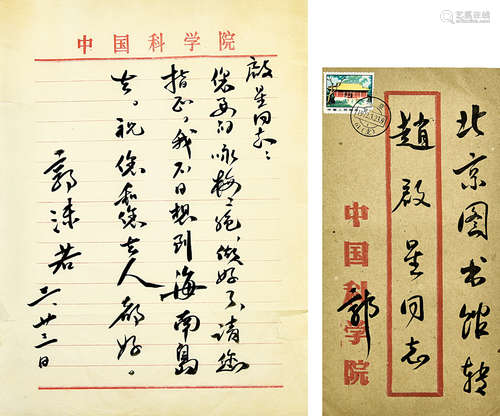 中国科学院
启星同志：
您要的咏梅二绝，做好了，请您
指正。我不日想到海南岛
去。祝您和您夫人都好。
郭沫若
二、廿三日
北京图书馆转
赵启星同志
中国科学院
郭